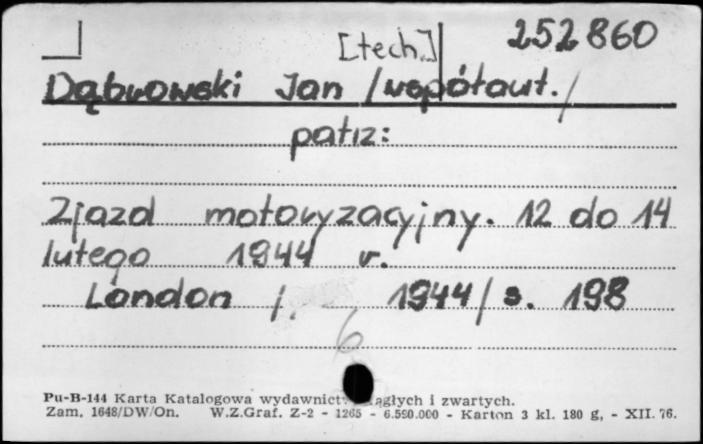 252860
[tech.]
Dąbrowski Jan /współaut./
patrz:
Zjazd motoryzacyjny. 12 do 14
lutego 1944 r.
London /. 1944/ s. 198
6
Pu-B-144 Karta Katalogowa wydawnictw ciągłych i zwartych.
Zam. 1648/DW/On. W.Z.Graf. Z-2 - 1265 - 6.590.000 - Karton 3 kl. 180 g, - XII. 76.